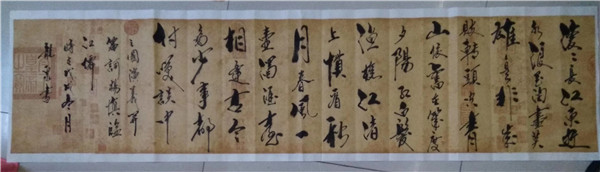 滚〻長江東逝
水浪花淘盡英
雄是非成
敗轉頭空青
山依舊在幾度
夕陽紅白髮
漁樵江渚
上慣看秋
月春風一
壺濁酒喜
相逢古今
多少事都
付笑談中
三國演義開
篇詞楊慎臨
江僊
時在戊戌冬月
書